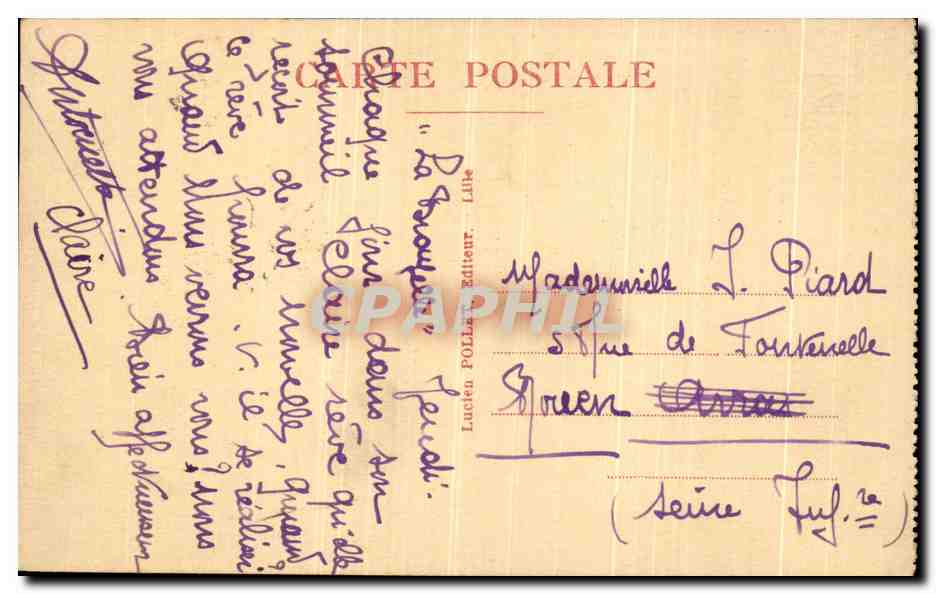 CARTE POSTALE
Jeudi.
Chaque jour dans son
sommeil Claire rêve qu'elle
reçoit de vos nouvelles, quand
ce rêve pourra-t-il se réaliser?
Quand vous verrons nous? nous
vous attendons. Adieu affectueusem
Antoinette
Claire
Lucien POLLET, Editeur. Lille
Mademoiselle J. Piard
5 Rue de Fontenelle
Rouen Arras
(Seine Inf.re)
CPAPHIL